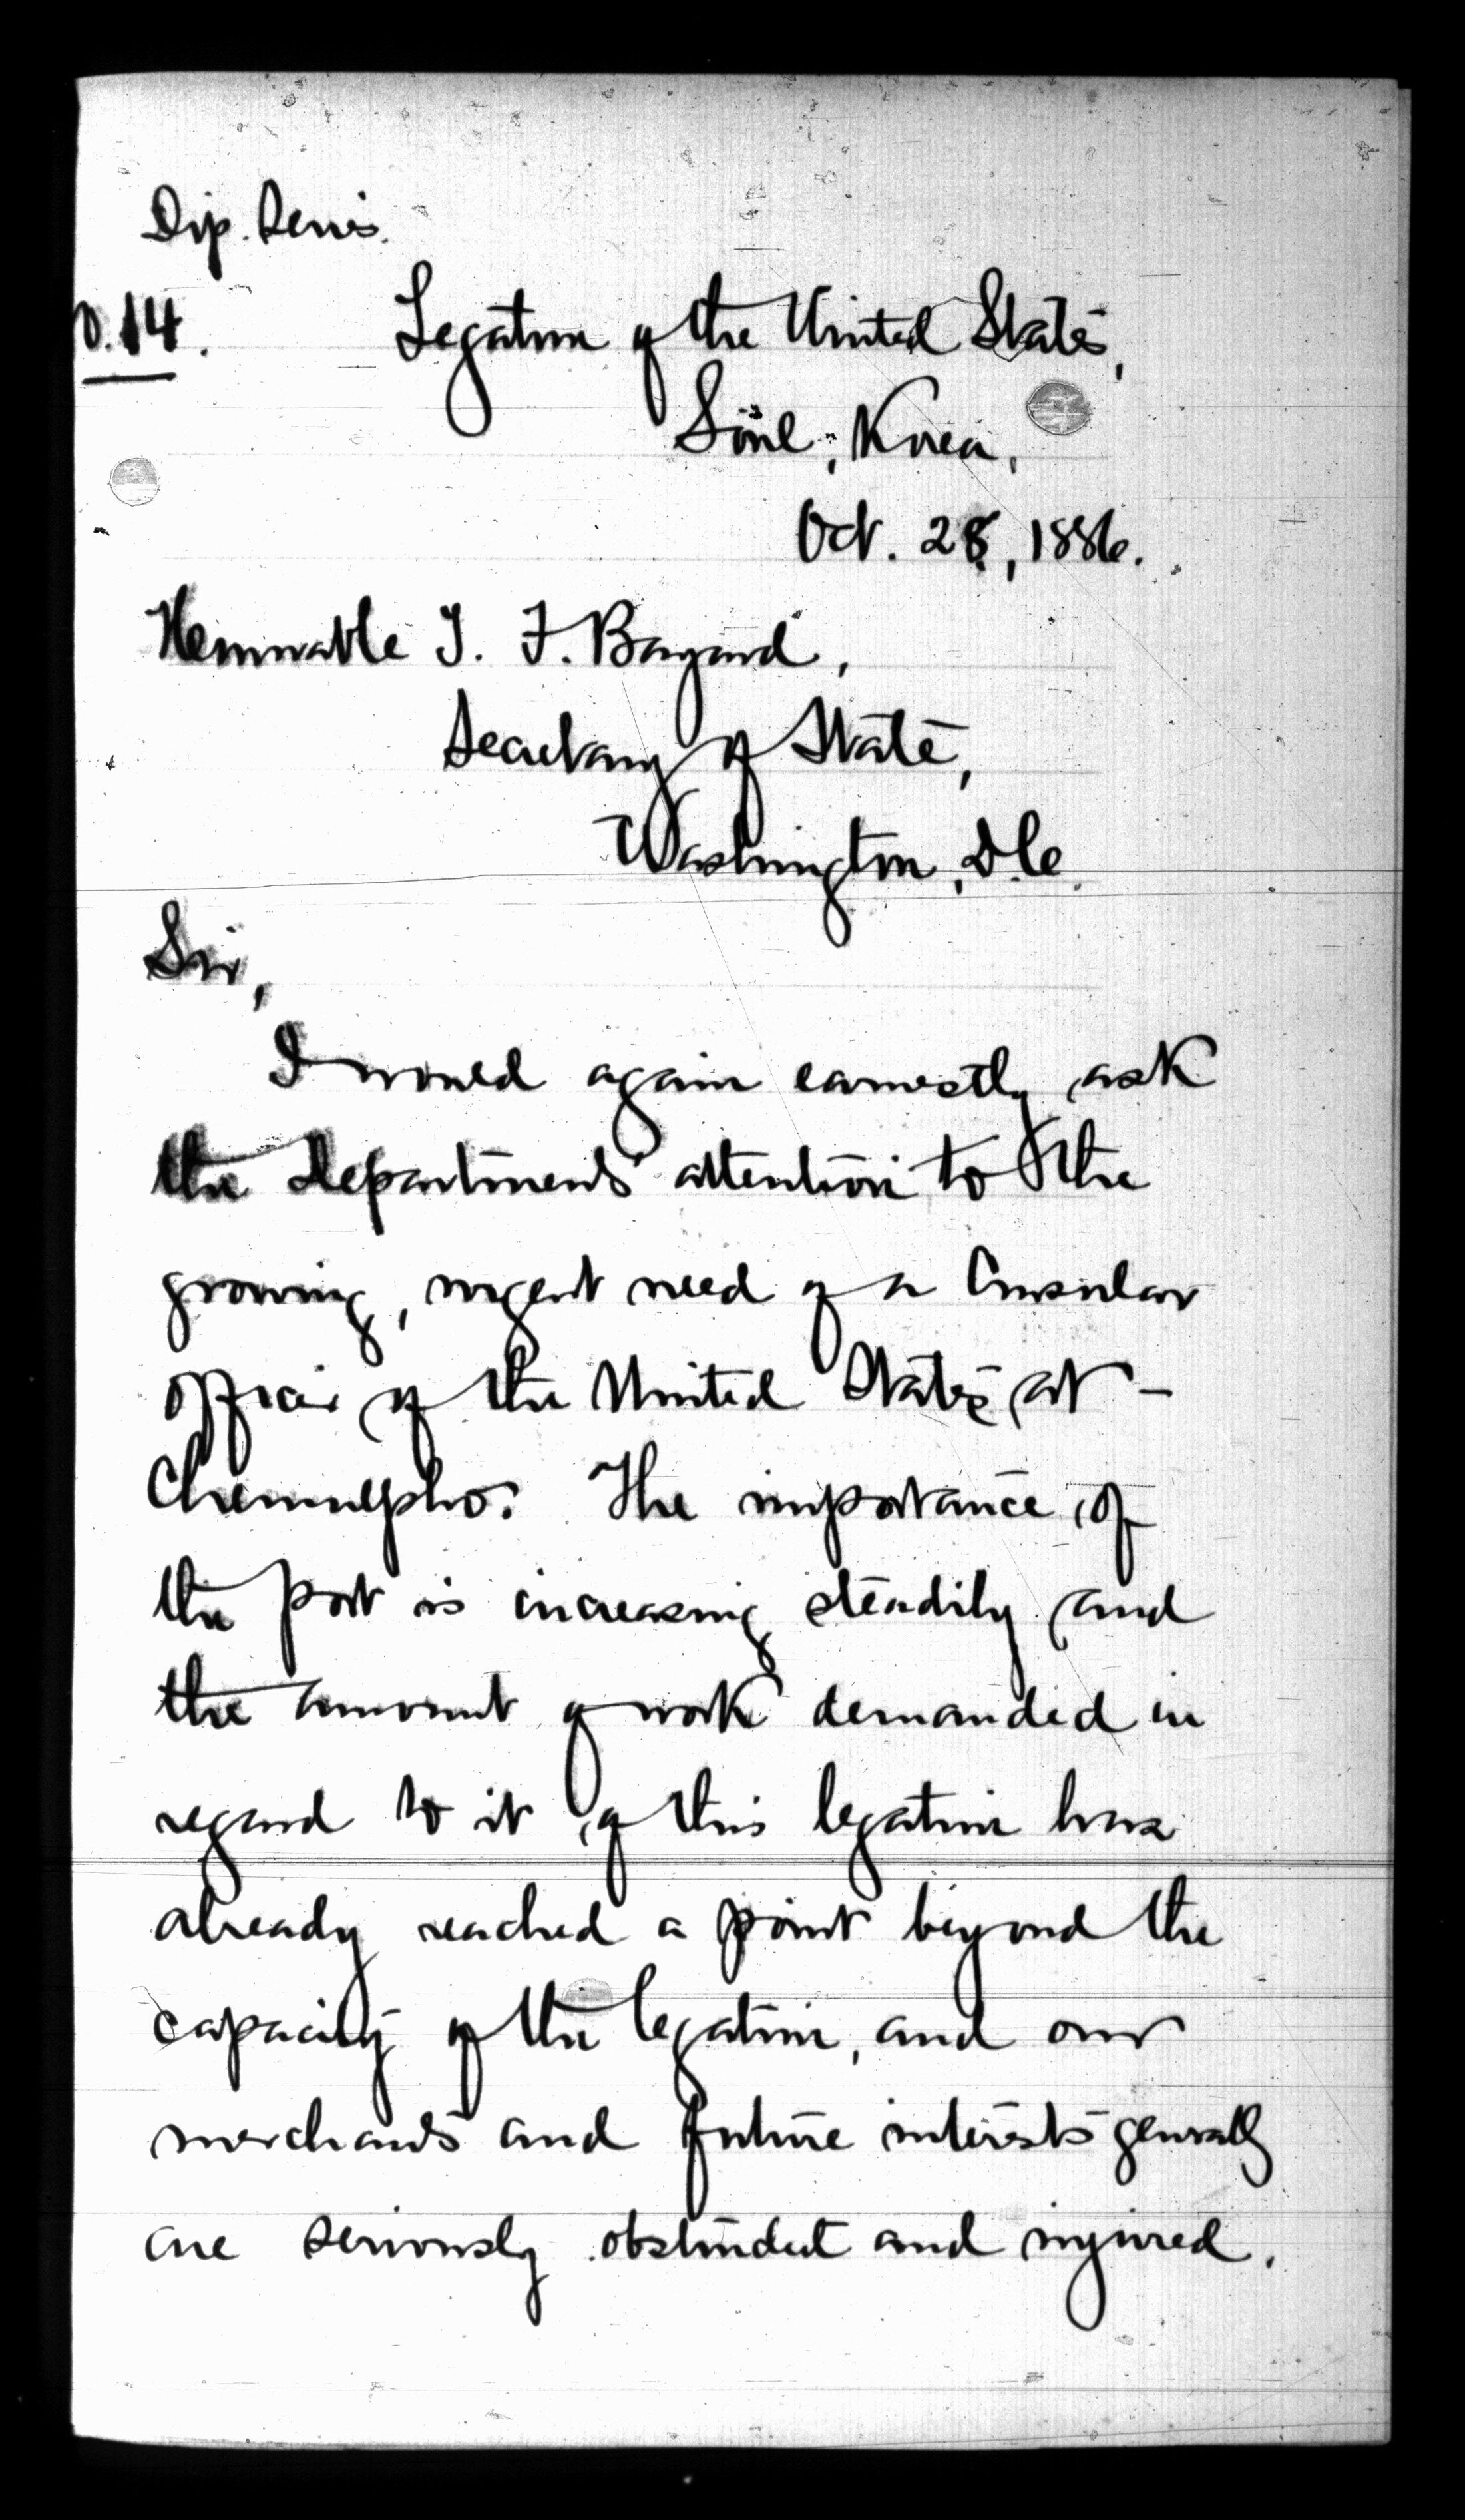 Dip. Series.
o. 14.
Legation of the United States,
Söul, Korea,
Oct. 28, 1886.
Honorable T. F. Bayard,
Secretary of State,
Washington, D.C.
Sir,
I would again earnestly ask
the Departments' attention to the
growing, urgent need of a Consular
officer of the United States at -
Chemulpho. The importance of
the port is increasing steadily and
the amount of work demanded in
regard to it of this legation has
already reached a point beyond the
capacity of the legation, and our
merchants and future interests generally
are seriously obstructed and injured.